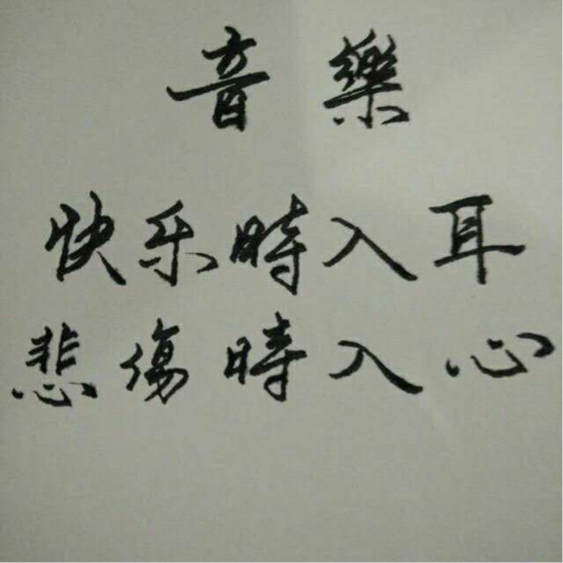 音樂
快乐時入耳
悲傷時入心